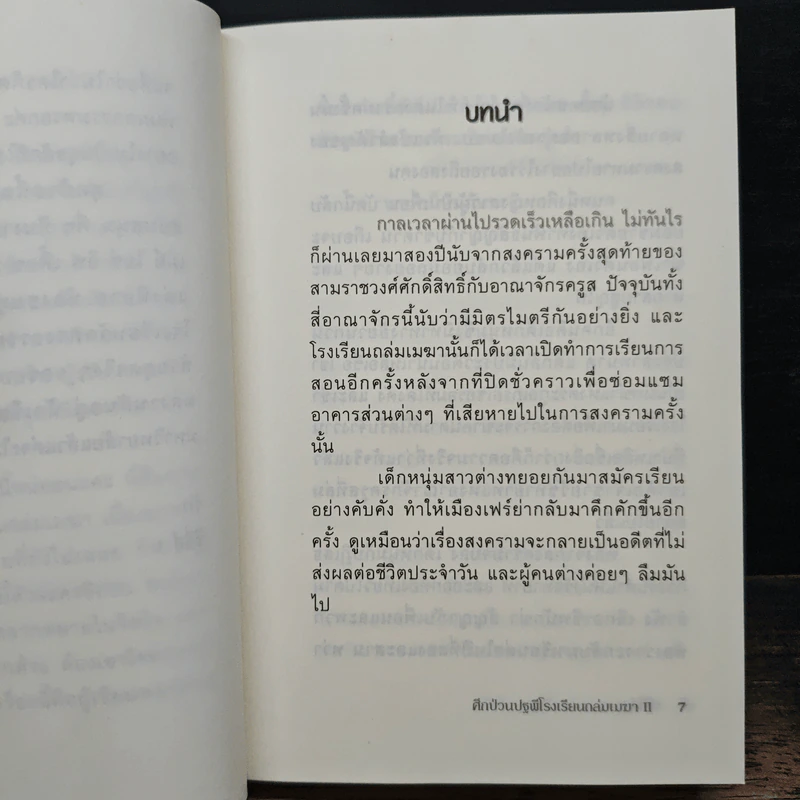 บทนำ
กาลเวลาผ่านไปรวดเร็วเหลือเกิน ไม่ทันไร
ก็ผ่านเลยมาสองปีนับจากสงครามครั้งสุดท้ายของ
สามราชวงศ์ศักดิ์สิทธิ์กับอาณาจักรครูส ปัจจุบันทั้ง
สี่อาณาจักรนี้นับว่ามีมิตรไมตรีกันอย่างยิ่ง และ
โรงเรียนถล่มเมฆานั้นก็ได้เวลาเปิดทำการเรียนการ
สอนอีกครั้งหลังจากที่ปิดชั่วคราวเพื่อซ่อมแซม
อาคารส่วนต่างๆ ที่เสียหายไปในการสงครามครั้ง
นั้น
เด็กหนุ่มสาวต่างทยอยกันมาสมัครเรียน
อย่างคับคั่ง ทำให้เมืองเฟร์ย่ากลับมาคึกคักขึ้นอีก
ครั้ง ดูเหมือนว่าเรื่องสงครามจะกลายเป็นอดีตที่ไม่
ส่งผลต่อชีวิตประจำวัน และผู้คนต่างค่อยๆ ลืมมัน
ไป
ศึกป่วนปฐพีโรงเรียนถล่มเมฆา II 7